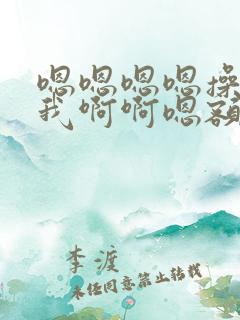 嗯嗯嗯嗯操
我啊啊嗯额
李渡
未经同意禁止转载